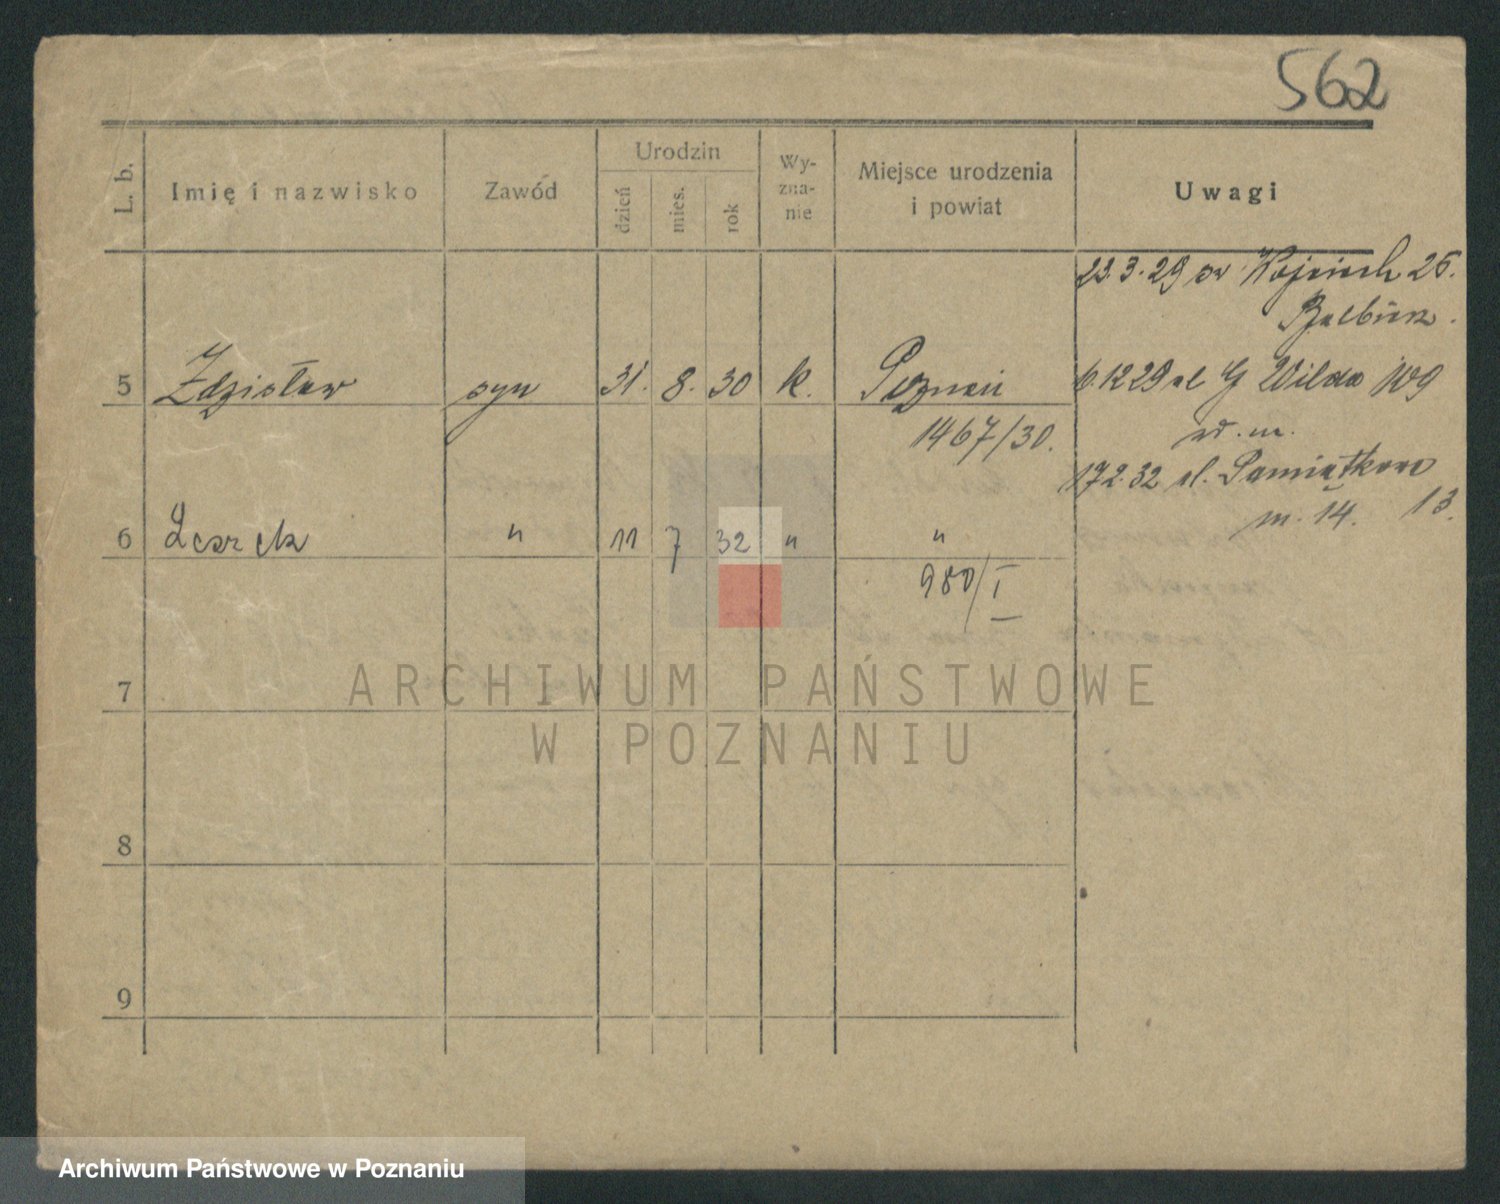 562
L. b.
Imię i nazwisko
Zawód
Urodzin
dzień
mies.
rok
Wy-
zna-
nie
Miejsce urodzenia
i powiat
Uwagi
23.3.29 św Wojciech 26.
6.12 29 ul G Wilda 109
5 Zdzisław syn 31. 8. 30 k. Poznań
1467/30.
17 2.32 ul. Pamiątkowa
m. 14. 13.
6 Leszek " 11 7 32 " "
980/I
7
8
9
ARCHIWUM PAŃSTWOWE
W POZNANIU
Archiwum Państwowe w Poznaniu